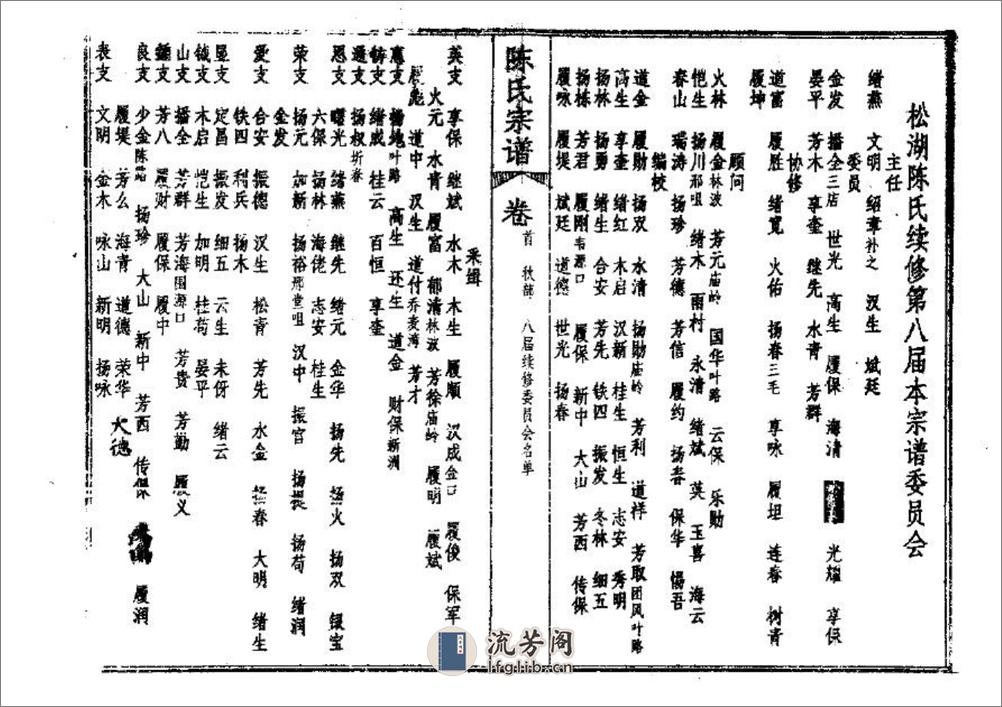 松湖陈氏续修第八届本宗谱委员会
主任
绪燕 文明 绍章补之 汉生 斌廷
委员
金发 播全三店 世光 高生 履保 海清 光耀 享保
晏平 芳木 享奎 继先 水青 芳群
协修
道富 履胜 绪宽 火佑 扬春三毛 享咏 履坦 连春 树青
履坤
顾问
火林 履金林波 芳元庙岭 国华叶路 云保 乐勋
恺生 扬川邢咀 绪木 雨村 永清 绪斌 英 玉喜 海云
春山 瑞涛 扬珍 芳德 芳信 履约 扬春 保华 惕吾
编校
道金 履勋 扬双 水清 扬勋庙岭 芳利 道样 芳取团风叶路
高生 享奎 绪红 木启 汉新 桂生 恒生 志安 秀明
扬林 扬勇 绪生 合安 芳先 铁四 振发 冬林 细五
扬栋 芳君 履刚韦源口 履保 新中 大山 芳西 传保
履咏 履堤 斌廷 道德 世光 扬春
陈氏宗谱 卷首 秋部 八届续修委员会名单
采缉
英支 享保 继斌 水木 木生 履顺 汉成金口 履俊 保军
火元 水青 履富 郁清林波 芳徐庙岭 履明 履斌
履彪 道中 汉生 道付乔麦湾 芳才
惠支 扬地叶路 高生 还生 道金 财保新洲
铸支 绪成 桂云 百恒 享奎
逊支 扬权圻春
恩支 曙光 绪燕 继先 绪元 金华 扬先 扬火 扬双 银宝
六保 扬林 海佬 志安 桂生
荣支 扬元 加新 扬裕邢堂咀 汉中 振官 扬畏 扬苟 绪润
金发
爱支 合安 振德 汉生 松青 芳先 水金 扬春 大明 绪生
铁四 利兵 扬木
显支 定昌 振发 细五 云生 未伢 绪云
钺支 木启 恺生 加明 桂苟 晏平
山支 播全 芳群 芳海围源口 芳贵 芳勤 履义
芳八 履财 履中
良支 少金陈路 扬珍 大山 新中 芳西 传保 履润
履堤 芳么 海青 道德 荣华 大德
表支 文明 金木 咏山 新明 扬咏
流芳阁
lfgjfjb.cn